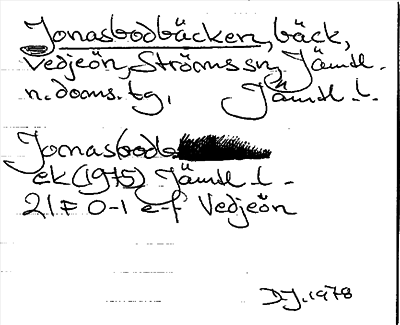 Jonasbodbäcken, bäck,
Vedjeön, Ströms sn, Jämtl.
n. doms. tg, Jämtl. l.
Jonasbodb
ek (1975) Jämtl. l.
21F 0-1 e-f Vedjeön
D.J. 1978